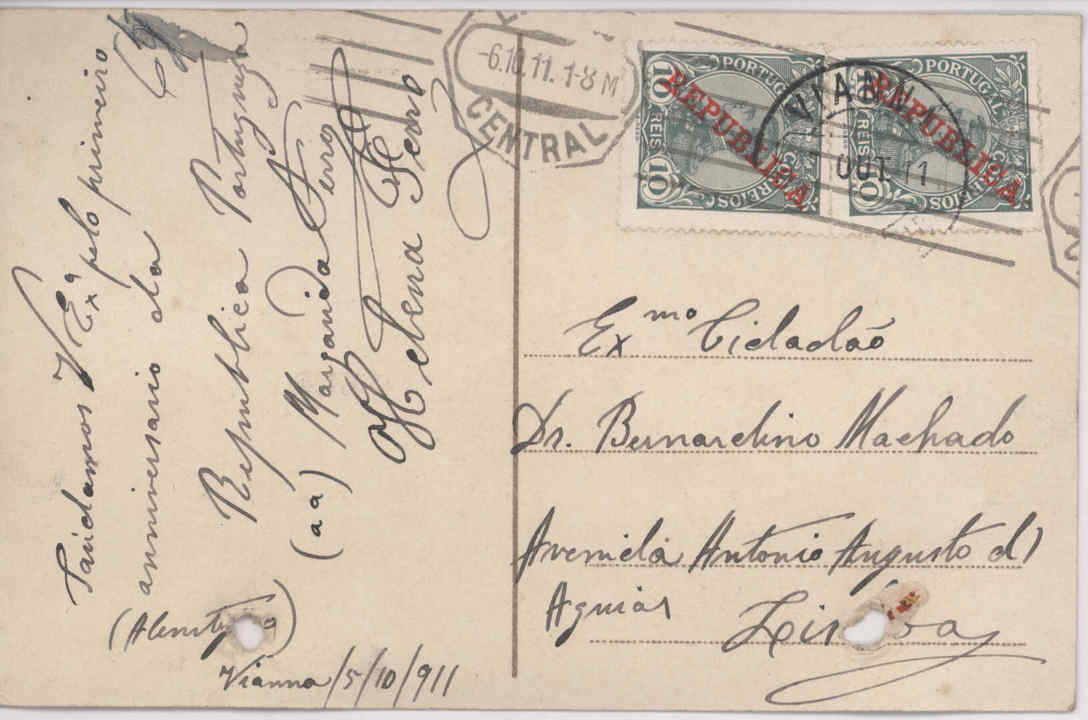 Saudamos V Exª pelo primeiro
anniversario da
Republica Portugueza
(aa) Margarida Ferro
Helena Ferro
Vianna/5/10/911
-6.10.11. 1-8 M
CENTRAL
PORTUGAL
CORREIOS
10 REIS 10
REPUBLICA
PORTUGAL
CORREIOS
REIS
REPUBLICA
VIANN
OUT 11
Exmo Cidadão
Dr. Bernardino Machado
Avenida Antonio Augusto d'
Aguiar